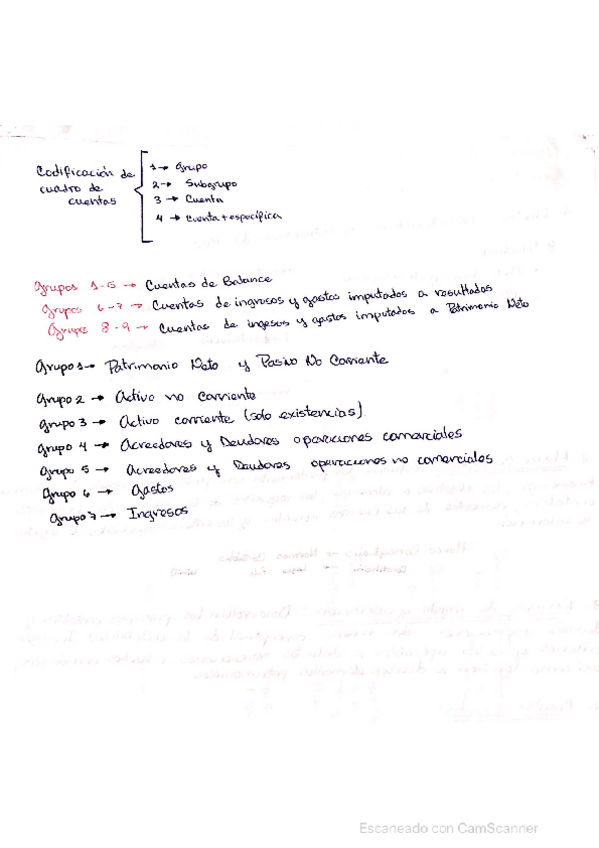 Codificación de
cuadro de
cuentas
1 → Grupo
2 → Subgrupo
3 → Cuenta
4 → Cuenta + específica
Grupos 1-5 → Cuentas de Balance
Grupos 6-7 → Cuentas de ingresos y gastos imputados a resultados
Grupos 8-9 → Cuentas de ingesos y gastos imputados a Patrimonio Neto
Grupo 1 → Patrimonio Neto y Pasivo No Corriente
Grupo 2 → Activo no corriente
Grupo 3 → Activo corriente (solo existencias).
Grupo 4 → Acreedores y Deudores operaciones comerciales
Grupo 5 → Acreedores y Deudores operaciones no comerciales
Grupo 6 → Gastos
Grupo 7 → Ingresos
Escaneado con CamScanner